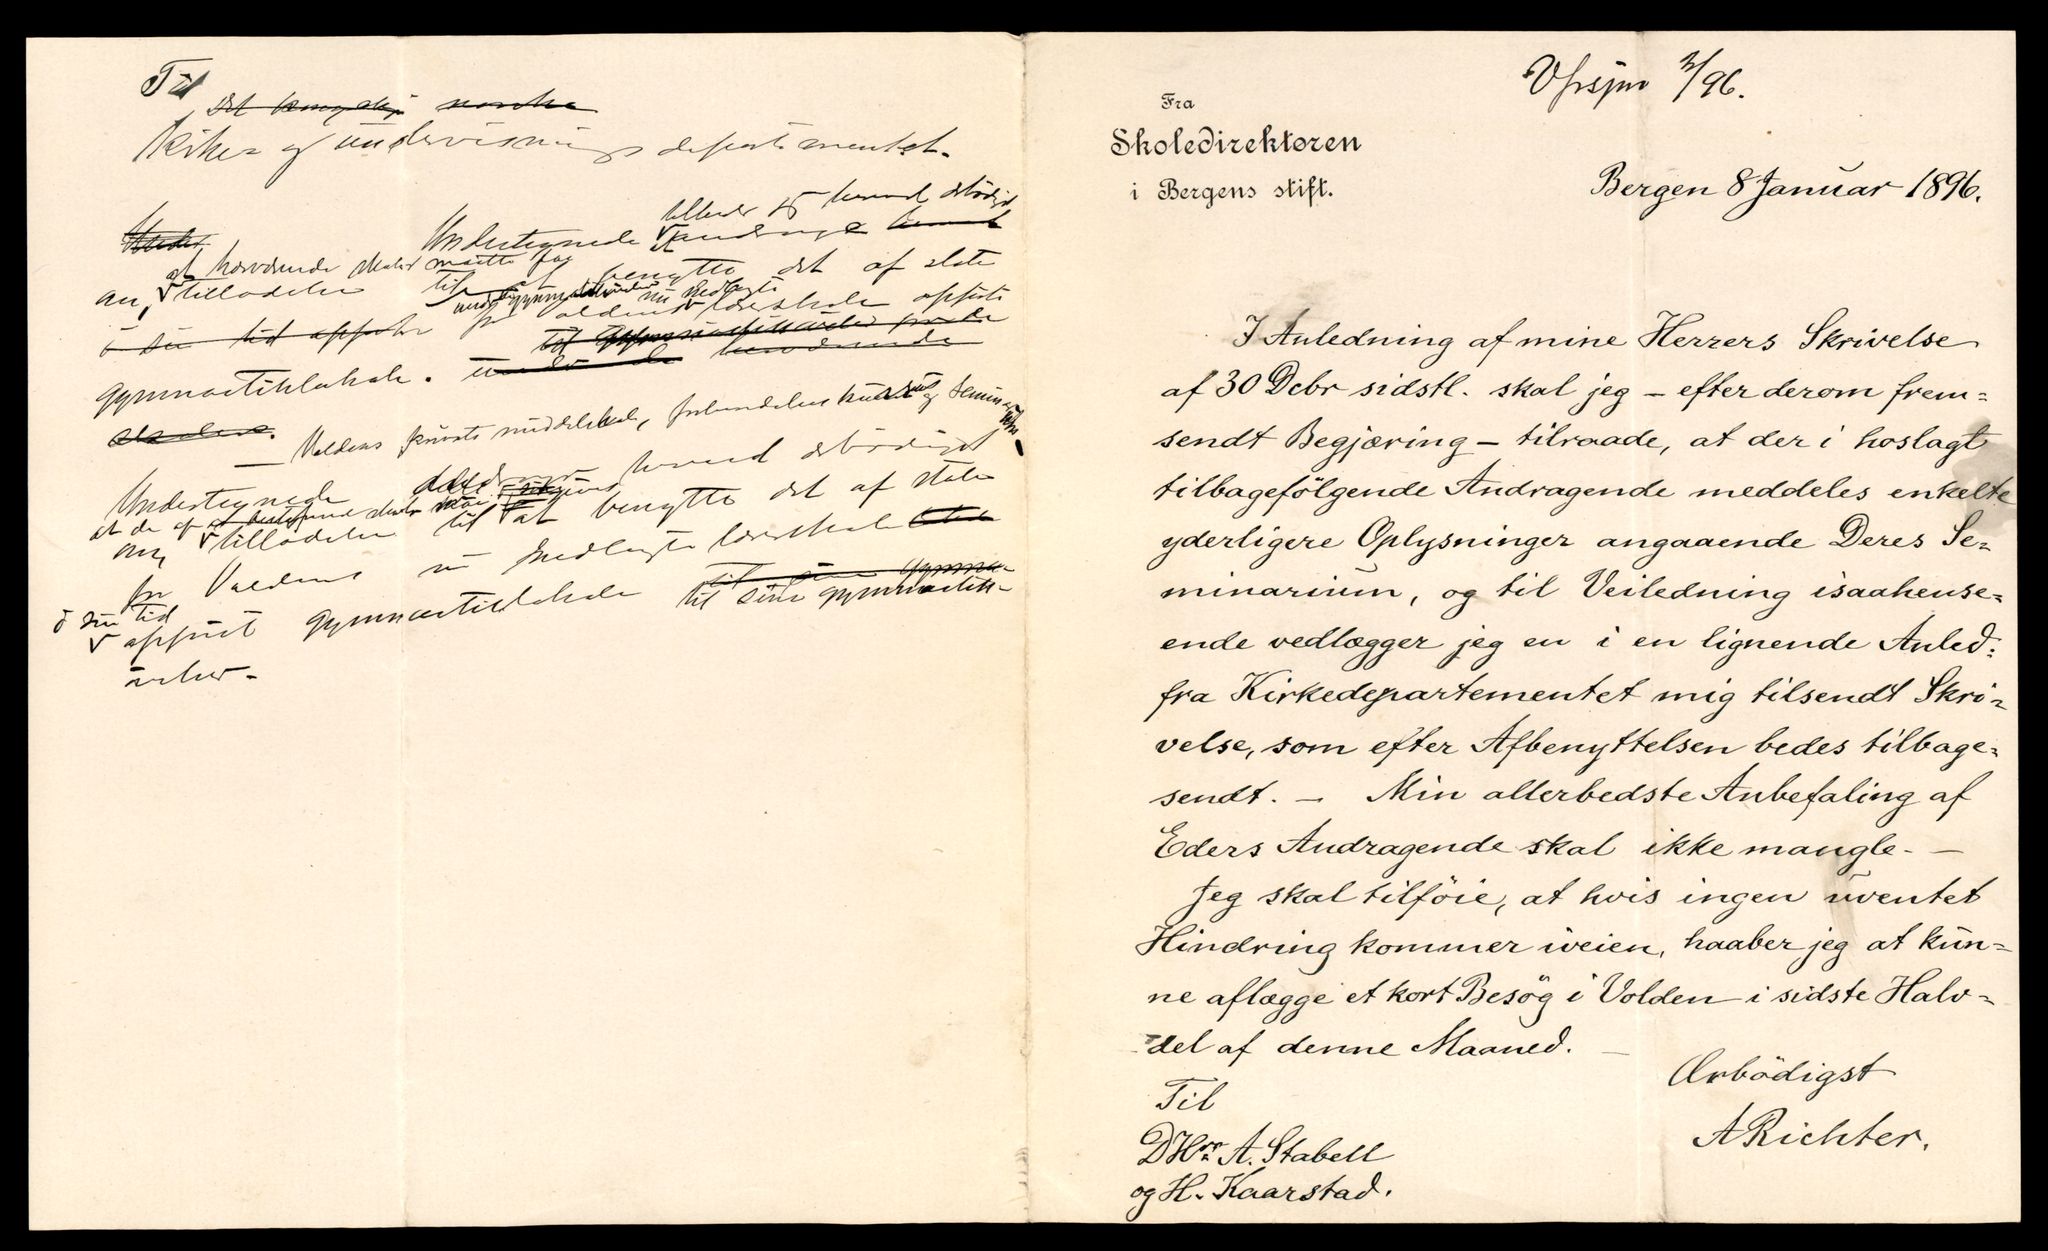 Til
det kongelige norske
Kirke og undervisnings departementet.
tillader sig herved ærbødigst
Undertegnede
at nærværende skoler maatte faa
an, tilladelse til at benytte det af staten
i sin tid opførte for Voldens lærerskole opførte
gymnastiklokale.
skolers.
— Voldens private middelskole, forberedelseskursus og seminarium.
Undertegnede herved ærbødigst
tilladelse til at benytte det af staten
for Voldens nu nedlagte lærerskole
i sin tid
opført gymnastiklokale til sine gymnastik-
øvelser.
2/96.
Fra
Skoledirektøren
i Bergens stift.
Bergen 8 Januar 1896.
I Anledning af mine Herrers Skrivelse
af 30 Dcbr sidstl. skal jeg – efter derom frem=
sendt Begjæring – tilraade, at der i hoslagt
tilbagefölgende Andragende meddeles enkelte
yderligere Oplysninger angaaende Deres Se=
minarium, og til Veiledning isaahense=
ende vedlægger jeg en i en lignende Anled:
fra Kirkedepartementet mig tilsendt Skri=
velse, som efter Afbenyttelsen bedes tilbage=
sendt. — Min allerbedste Anbefaling af
Eders Andragende skal ikke mangle. —
Jeg skal tilföie, at hvis ingen uventet
Hindring kommer iveien, haaber jeg at kun=
ne aflægge et kort Besög i Volden i sidste Halv=
del af denne Maaned. —
Ærbödigst
A Richter.
Til
D Hrr A. Stabell
og H. Kaarstad.